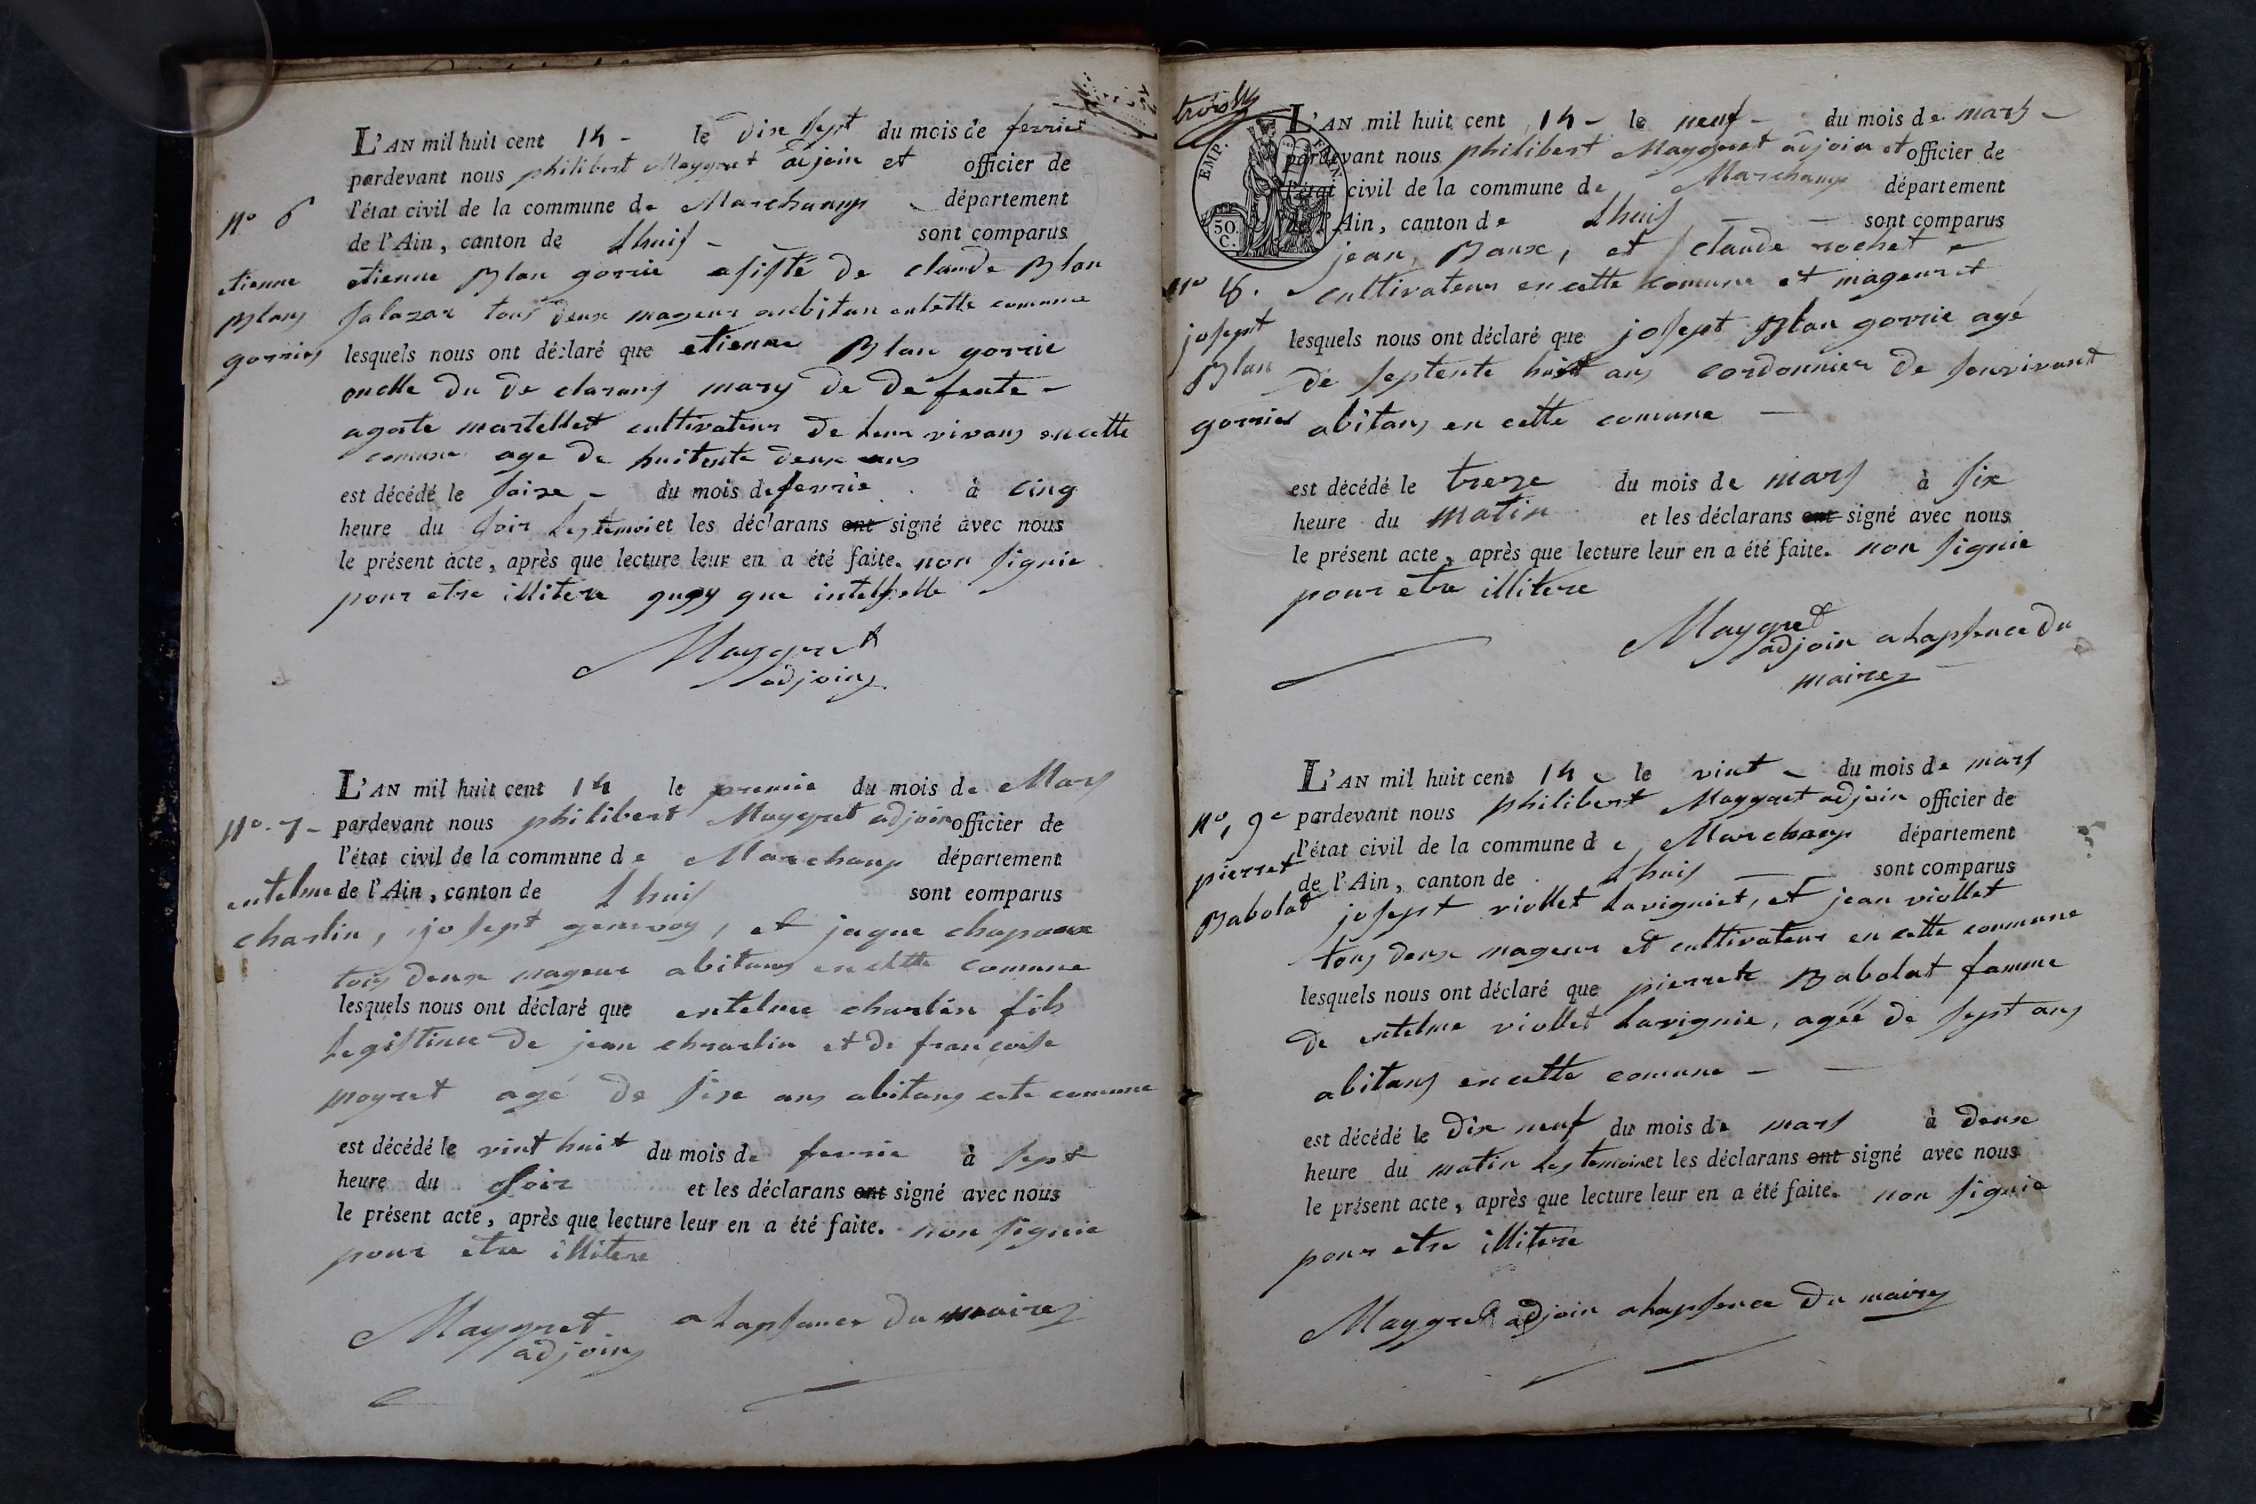 L'AN mil huit cent 14 - le dix sept du mois de fevrier
pardevant nous philibert Maygret adjoin et officier de
l'état civil de la commune de Marchamp département
de l'Ain, canton de Lhuis - sont comparus
n° 6
etienne
Blanc
gorrie
etienne Blan gorrie asisté de claude Blan
salazar tous deux mageur en cette comune
lesquels nous ont déclaré que etienne Blan gorrie
oncle du de clarans mary de defeute -
agate martellet cultivateur de leur vivans en cette
comune age de huitente deux ans
est décédé le saize - du mois de fevrie à cinq
heure du soir les temoi et les déclarans ont signé avec nous
le présent acte, après que lecture leur en a été faite. non signie
pour etre illitere
Maygret
adjoin
L'AN mil huit cent 14 le premie du mois de Mars
n° 7 - pardevant nous philibert Maygret adjoin officier de
l'état civil de la commune de Marchamp département
entelme de l'Ain, canton de Lhuis sont comparus
charlin, josept genevoy, et jaque chapaux
tous deux mageur abitans en cette comune
lesquels nous ont déclaré que entelme charlin fils
legistime de jean charlin et de francoise
poyret agé de sixe ans abitans cete comune
est décédé le vint huit du mois de fevrie à sept
heure du soir et les déclarans ont signé avec nous
le présent acte, après que lecture leur en a été faite. non signie
pour etre illitere
Maygret a lapsance du maire
adjoin
trois
EMP. FRAN.
50. C.
L'AN mil huit cent 14 - le neuf - du mois de mars -
pardevant nous philibert Maygret adjoin et officier de
l'état civil de la commune de Marchamp département
de l'Ain, canton de Lhuis - - sont comparus
jean, Baux, et claude rochet
n° 8. cultivateur en cette comune et mageur et
josept
Blan
gorrie
lesquels nous ont déclaré que josept Blan gorrie agé
de septente huit ans cordonnier de son vivant
abitans en cette comune -
est décédé le treze du mois de mars à six
heure du matin et les déclarans ont signé avec nous
le présent acte, après que lecture leur en a été faite. non signie
pour etre illitere
Maygret
adjoin a lapsence du
maire
L'AN mil huit cent 14 - le vint - du mois de mars
n°, 9e pardevant nous philibert Maygret adjoin officier de
l'état civil de la commune de Marchamp département
pierret de l'Ain, canton de Lhuis - - sont comparus
Babolat josept viollet lavigniet, et jean viollet
tous deux mageur et cultivateur en cette comune
lesquels nous ont déclaré que pierrete Babolat famme
de entelme viollet lavignie, agéé de sept ans
abitans en cette comune - -
est décédé le dix neuf du mois de mars à deux
heure du matin les temoin et les déclarans ont signé avec nous
le présent acte, après que lecture leur en a été faite. non signie
pour etre illitere
Maygret adjoin a lapsence du maire